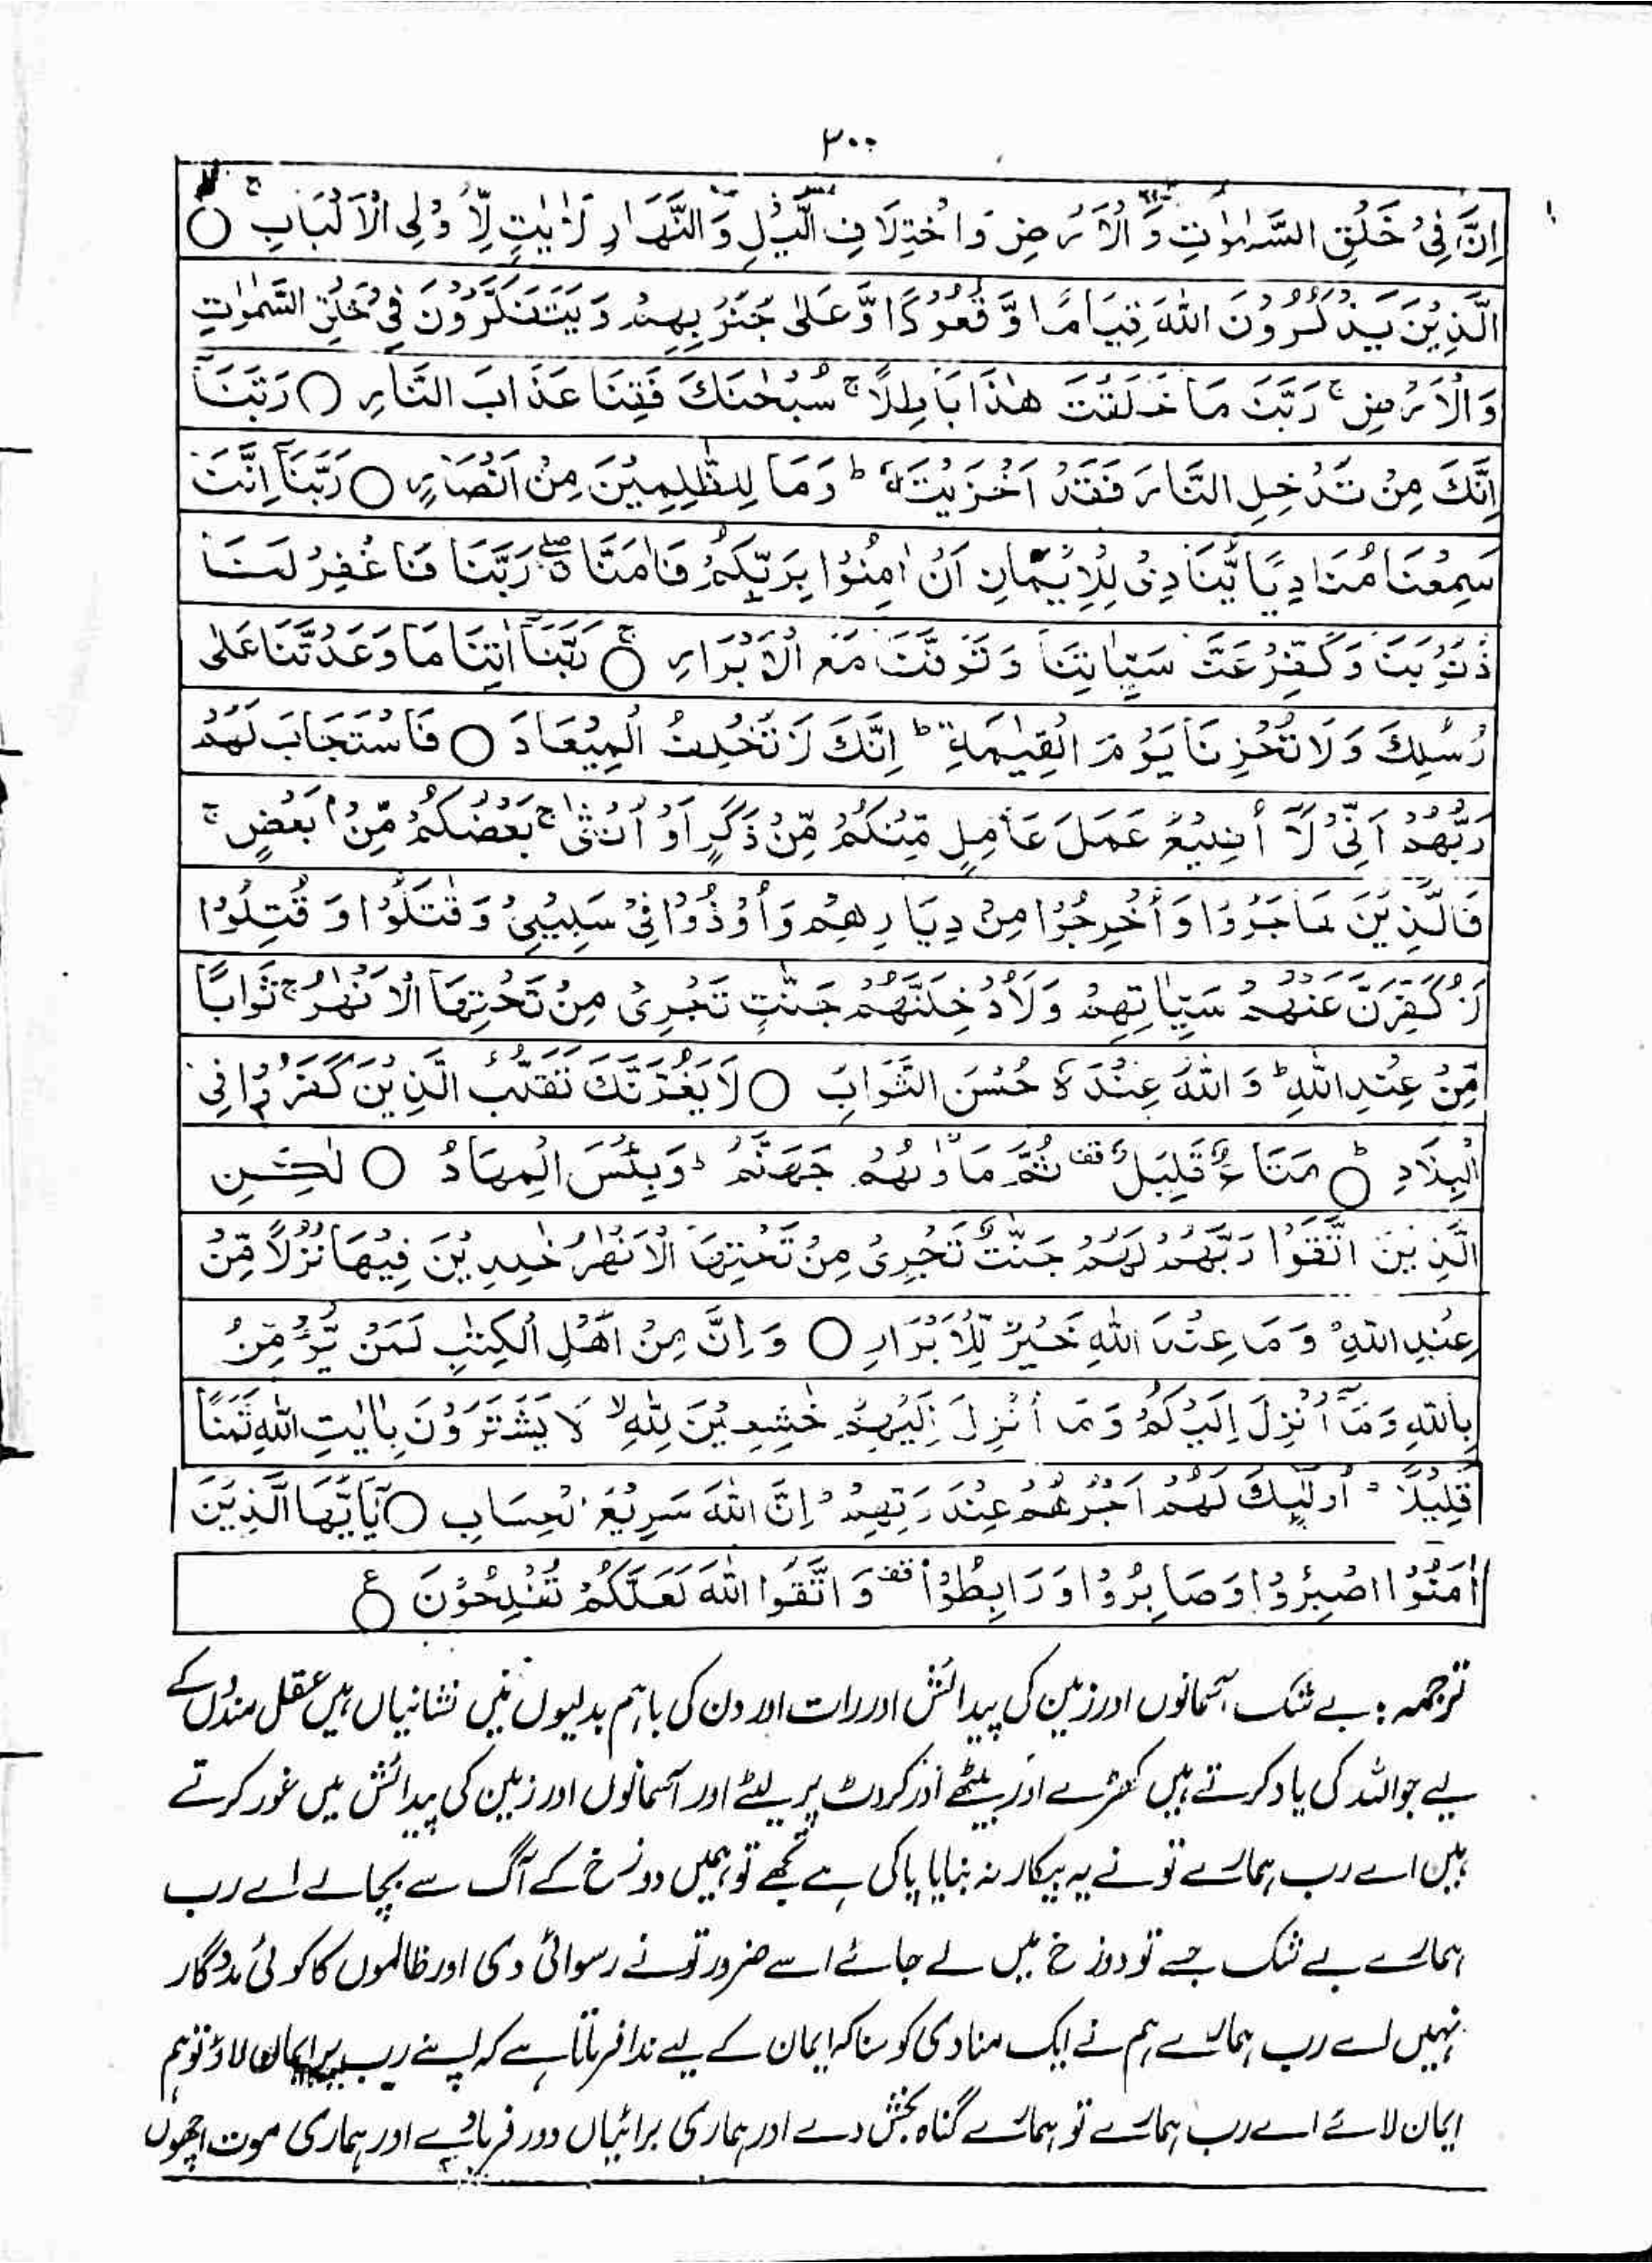 ۳۰۰
اِنَّ فِیْ خَلْقِ السَّمٰوٰتِ وَ الْاَرْضِ وَاخْتِلَافِ الَّیْلِ وَالنَّهَارِ لَاٰیٰتٍ لِّاُولِی الْاَلْبَابِ ۚ○
الَّذِیْنَ یَذْكُرُوْنَ اللّٰهَ قِیَامًا وَّ قُعُوْدًا وَّعَلٰی جُنُوْبِهِمْ وَیَتَفَكَّرُوْنَ فِیْ خَلْقِ السَّمٰوٰتِ
وَالْاَرْضِ ۚ رَبَّنَا مَا خَلَقْتَ هٰذَا بَاطِلًا ۚ سُبْحٰنَكَ فَقِنَا عَذَابَ النَّارِ ○ رَبَّنَاۤ
اِنَّكَ مِنْ تُدْخِلِ النَّارَ فَقَدْ اَخْزَیْتَهٗ ؕ وَمَا لِلظّٰلِمِیْنَ مِنْ اَنْصَارٍ ○ رَبَّنَاۤ اِنَّنَا
سَمِعْنَا مُنَادِیًا یُّنَادِیْ لِلْاِیْمَانِ اَنْ اٰمِنُوْا بِرَبِّكُمْ فَاٰمَنَّا ۖ○ رَبَّنَا فَاغْفِرْ لَنَا
ذُنُوْبَنَا وَكَفِّرْ عَنَّا سَیِّاٰتِنَا وَتَوَفَّنَا مَعَ الْاَبْرَارِ ۚ○ رَبَّنَاۤ اٰتِنَا مَا وَعَدْتَّنَا عَلٰی
رُسُلِكَ وَلَا تُخْزِنَا یَوْمَ الْقِیٰمَةِ ؕ اِنَّكَ لَا تُخْلِفُ الْمِیْعَادَ ○ فَاسْتَجَابَ لَهُمْ
رَبُّهُمْ اَنِّیْ لَاۤ اُضِیْعُ عَمَلَ عَامِلٍ مِّنْكُمْ مِّنْ ذَكَرٍ اَوْ اُنْثٰی ۚ بَعْضُكُمْ مِّنْۢ بَعْضٍ ۚ
فَالَّذِیْنَ هَاجَرُوْا وَاُخْرِجُوْا مِنْ دِیَارِهِمْ وَاُوْذُوْا فِیْ سَبِیْلِیْ وَقٰتَلُوْا وَ قُتِلُوْا
لَاُكَفِّرَنَّ عَنْهُمْ سَیِّاٰتِهِمْ وَلَاُدْخِلَنَّهُمْ جَنّٰتٍ تَجْرِیْ مِنْ تَحْتِهَا الْاَنْهٰرُ ۚ ثَوَابًا
مِّنْ عِنْدِ اللّٰهِ ؕ وَاللّٰهُ عِنْدَهٗ حُسْنُ الثَّوَابِ ○ لَا یَغُرَّنَّكَ تَقَلُّبُ الَّذِیْنَ كَفَرُوْا فِی
الْبِلَادِ ؕ○ مَتَاعٌ قَلِیْلٌ قف ثُمَّ مَاْوٰىهُمْ جَهَنَّمُ ؕ وَبِئْسَ الْمِهَادُ ○ لٰكِنِ
الَّذِیْنَ اتَّقَوْا رَبَّهُمْ لَهُمْ جَنّٰتٌ تَجْرِیْ مِنْ تَحْتِهَا الْاَنْهٰرُ خٰلِدِیْنَ فِیْهَا نُزُلًا مِّنْ
عِنْدِ اللّٰهِ ؕ وَمَا عِنْدَ اللّٰهِ خَیْرٌ لِّلْاَبْرَارِ ○ وَاِنَّ مِنْ اَهْلِ الْكِتٰبِ لَمَنْ یُّؤْمِنُ
بِاللّٰهِ وَمَاۤ اُنْزِلَ اِلَیْكُمْ وَمَا اُنْزِلَ اِلَیْهِمْ خٰشِعِیْنَ لِلّٰهِ ۙ لَا یَشْتَرُوْنَ بِاٰیٰتِ اللّٰهِ ثَمَنًا
قَلِیْلًا ؕ اُولٰٓىِٕكَ لَهُمْ اَجْرُهُمْ عِنْدَ رَبِّهِمْ ؕ اِنَّ اللّٰهَ سَرِیْعُ الْحِسَابِ ○ یٰۤاَیُّهَا الَّذِیْنَ
اٰمَنُوا اصْبِرُوْا وَصَابِرُوْا وَرَابِطُوْا قف وَاتَّقُوا اللّٰهَ لَعَلَّكُمْ تُفْلِحُوْنَ ○ ع
ترجمہ: بے شک آسمانوں اور زمین کی پیدائش اور رات اور دن کی باہم بدلیوں میں نشانیاں ہیں عقل مندوں کے
لیے جو اللہ کی یاد کرتے ہیں کھڑے اور بیٹھے اور کروٹ پر لیٹے اور آسمانوں اور زمین کی پیدائش میں غور کرتے
ہیں اے رب ہمارے تو نے یہ بیکار نہ بنایا پاکی ہے تجھے تو ہمیں دوزخ کے آگ سے بچالے اے رب
ہمارے بے شک جسے تو دوزخ میں لے جائے اسے ضرور تو نے رسوائی دی اور ظالموں کا کوئی مددگار
نہیں اے رب ہمارے ہم نے ایک منادی کو سنا کہ ایمان کے لیے ندا فرماتا ہے کہ اپنے رب پر ایمان لاؤ تو ہم
ایمان لائے اے رب ہمارے تو ہمارے گناہ بخش دے اور ہماری برائیاں دور فرمادے اور ہماری موت اچھوں